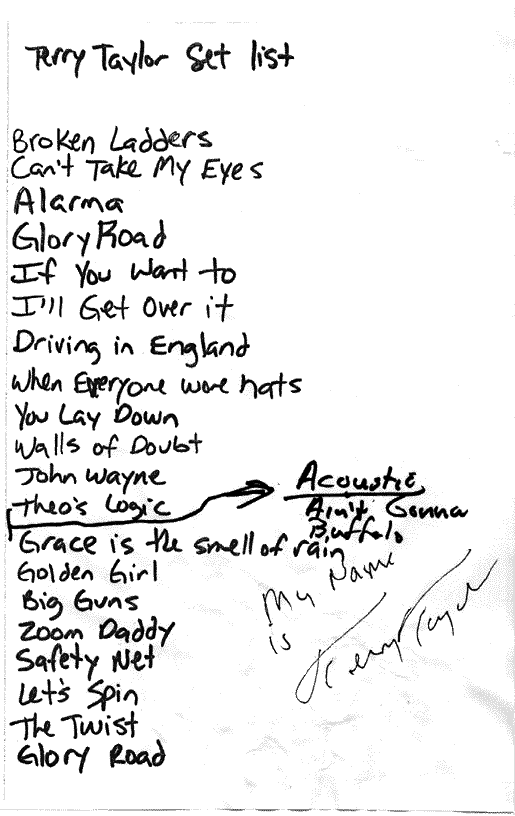 Terry Taylor Set list
Broken Ladders
Can't Take My Eyes
Alarma
Glory Road
If You Want to
I'll Get Over it
Driving in England
When Everyone wore hats
You Lay Down
Walls of Doubt
John Wayne
Theo's Logic
Acoustic
Ain't Gonna
Buffalo
Grace is the smell of rain
Golden Girl
Big Guns
Zoom Daddy
Safety Net
Let's Spin
The Twist
Glory Road
My Name
is
Terry Taylor